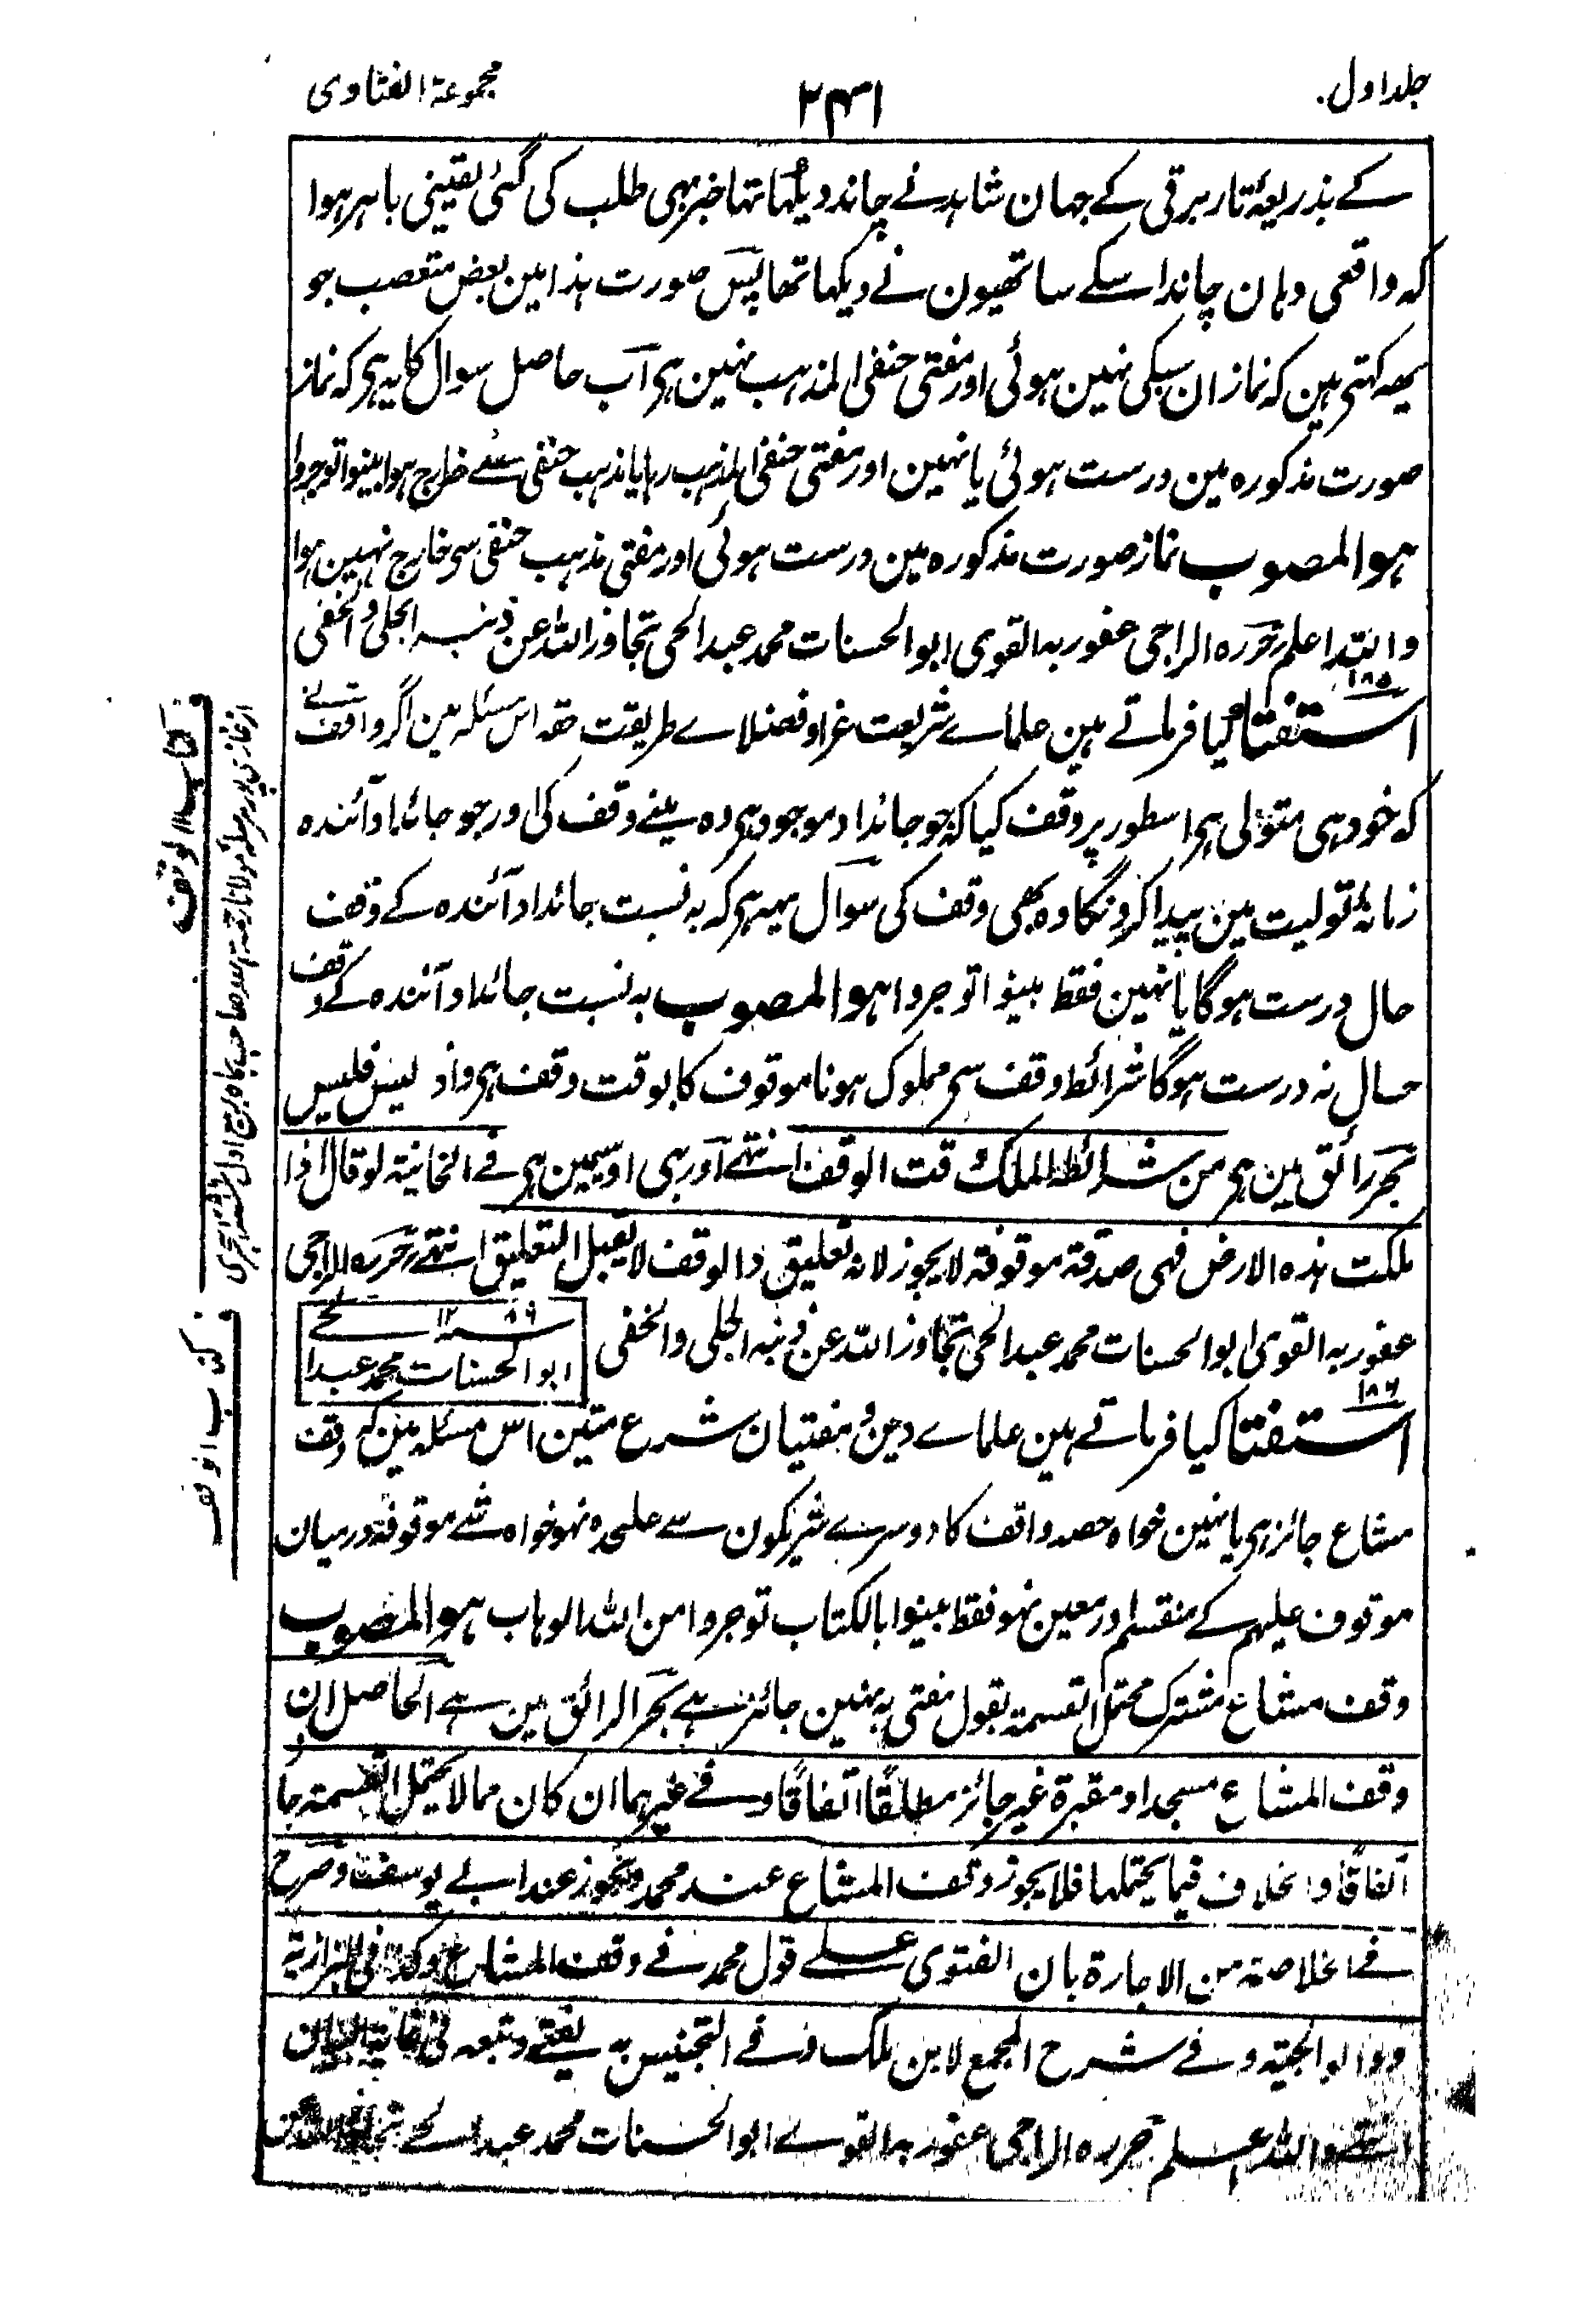 جلد اول.
۲۴۱
مجموعۃ الفتاوی
کے بذریعۂ تار برقی کے جہان شاہد نے چاند دیکھا تھا خبر بہی طلب کی گئی یقینی باہر ہوا
کہ واقعی وہان چاند اسکے ساتھیون نے دیکھا تھا پس صورت ہذا مین بعض متعصب جو
یہ کہتی ہین کہ نماز ان سبکی نہین ہوئی اور مفتی حنفی المذہب نہین ہی اب حاصل سوال کا یہ ہی کہ نماز
صورت مذکورہ مین درست ہوئی یا نہین اور مفتی حنفی المذہب رہا یا مذہب حنفی سے خارج ہوا بینوا توجروا
ہو المصوب نماز صورت مذکورہ مین درست ہوئی اور مفتی مذہب حنفی سی خارج نہین ہوا
واللہ اعلم حررہ الراجی عفو ربہ القوی ابو الحسنات محمد عبد الحی تجاوز اللہ عن ذنبہ الجلی والخفی
۱۸۵
استفتا کیا فرماتے ہین علماے شریعت غرا و فضلاے طریقت حقہ اس مسئلہ مین اگر واقف نے
کہ خود ہی متولی ہی اسطور پر وقف کیا کہ جو جائداد موجود ہی وہ مینے وقف کی اور جو جائداد آئندہ
زمانۂ تولیت مین پیدا کرونگا وہ بھی وقف کی سوال یہہ ہی کہ بہ نسبت جائداد آئندہ کے وقف
حال درست ہوگا یا نہین فقط بینوا توجروا ہو المصوب بہ نسبت جائداد آئندہ کے وقف
حال نہ درست ہوگا شرائط وقف سی مملوک ہونا موقوف کا بوقت وقف ہی واذ لیس فلیس
بحر رائق مین ہی من شرائطہ الملک وقت الوقف انتہی اور بہی اوسیمین ہی فی الخانیۃ لو قال اذا
ملکت ہذہ الارض فہی صدقۃ موقوفۃ لا یجوز لانہ تعلیق والوقف لا یقبل التعلیق انتہی حررہ الراجی
عفو ربہ القوی ابو الحسنات محمد عبد الحی تجاوز اللہ عن ذنبہ الجلی والخفی
ابو الحسنات محمد عبدالحے
۱۸۶
استفتا کیا فرماتے ہین علماے دین و مفتیان شرع متین اس مسئلہ مین کہ وقف
مشاع جائز ہی یا نہین خواہ حصہ واقف کا دوسرے شریکون سے علیحدہ نہو خواہ شے موقوفہ درمیان
موقوف علیہم کے منقسم اور معین نہو فقط بینوا بالکتاب توجروا من اللہ الوہاب ہو المصوب
وقف مشاع مشترک محتمل القسمۃ بقول مفتی بہ نہین جائز ہے بحر الرائق مین ہے الحاصل ان
وقف المشاع مسجدا و مقبرۃ غیر جائز مطلقًا اتفاقًا و فے غیرہما ان کان مما لا یحتمل القسمۃ جاز
اتفاقًا والخلاف فیما یحتملہا فلا یجوز وقف المشاع عند محمد ویجوز عند ابے یوسف وصرح
فے الخلاصۃ من الاجارۃ بان الفتوی علے قول محمد فے وقف المشاع وکذا فی البزازیۃ
والولوالجیۃ و فے شرح المجمع لابن ملک و فے التجنیس بہ یفتے وتبعہ فی غایۃ البیان
انتہے واللہ اعلم حررہ الراجی عفو ربہ القوے ابو الحسنات محمد عبد الحے تجاوز اللہ عن
کتاب الوقف